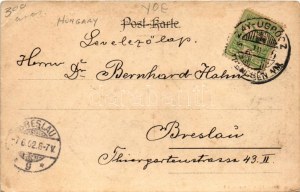 HUNGARY
Post-Karte
Levelezőlap.
Herrn Dr Bernhard Hahn
Breslau
Thiergartenstrasse 43. II
BRESLAU